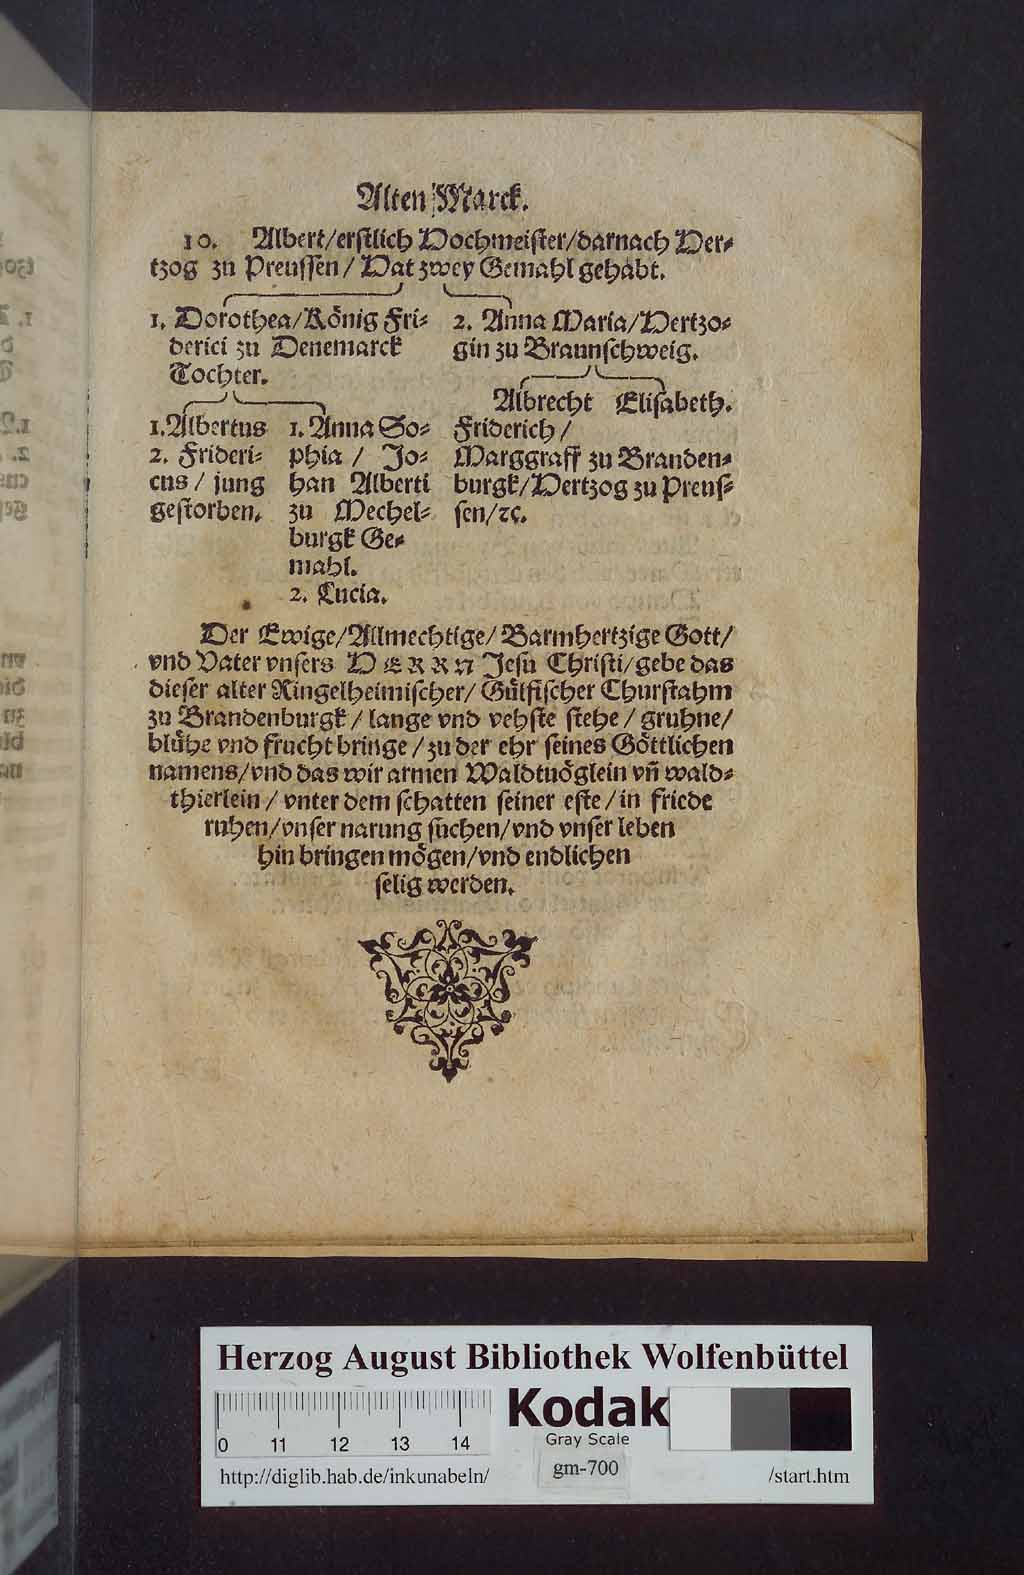 Alten Marck.
10. Albert/erstlich Hochmeister/darnach Her-
tzog zu Preussen/ Hat zwey Gemahl gehabt.
1. Dorothea/König Fri-
derici zu Denemarck
Tochter.
2. Anna Maria/Hertzo-
gin zu Braunschweig.
1. Albertus
2. Frideri-
cus/ jung
gestorben.
1. Anna So-
phia/ Jo-
han Alberti
zu Mechel-
burgk Ge-
mahl.
2. Lucia.
Albrecht Elisabeth.
Friderich/
Marggraff zu Branden-
burgk/Hertzog zu Preus-
sen/ꝛc.
Der Ewige/Allmechtige/ Barmhertzige Gott/
vnd Vater vnsers HERRN Jesu Christi/gebe das
dieser alter Ringelheimischer/ Gülfischer Churstahm
zu Brandenburgk/ lange vnd vehste stehe/ gruhne/
blühe vnd frucht bringe/ zu der ehr seines Göttlichen
namens/vnd das wir armen Waldtuöglein vn̄ wald-
thierlein/ vnter dem schatten seiner este/ in friede
ruhen/vnser narung suchen/vnd vnser leben
hin bringen mögen/vnd endlichen
selig werden.
Herzog August Bibliothek Wolfenbüttel
0 11 12 13 14
Kodak
Gray Scale
http://diglib.hab.de/inkunabeln/
gm-700
/start.htm